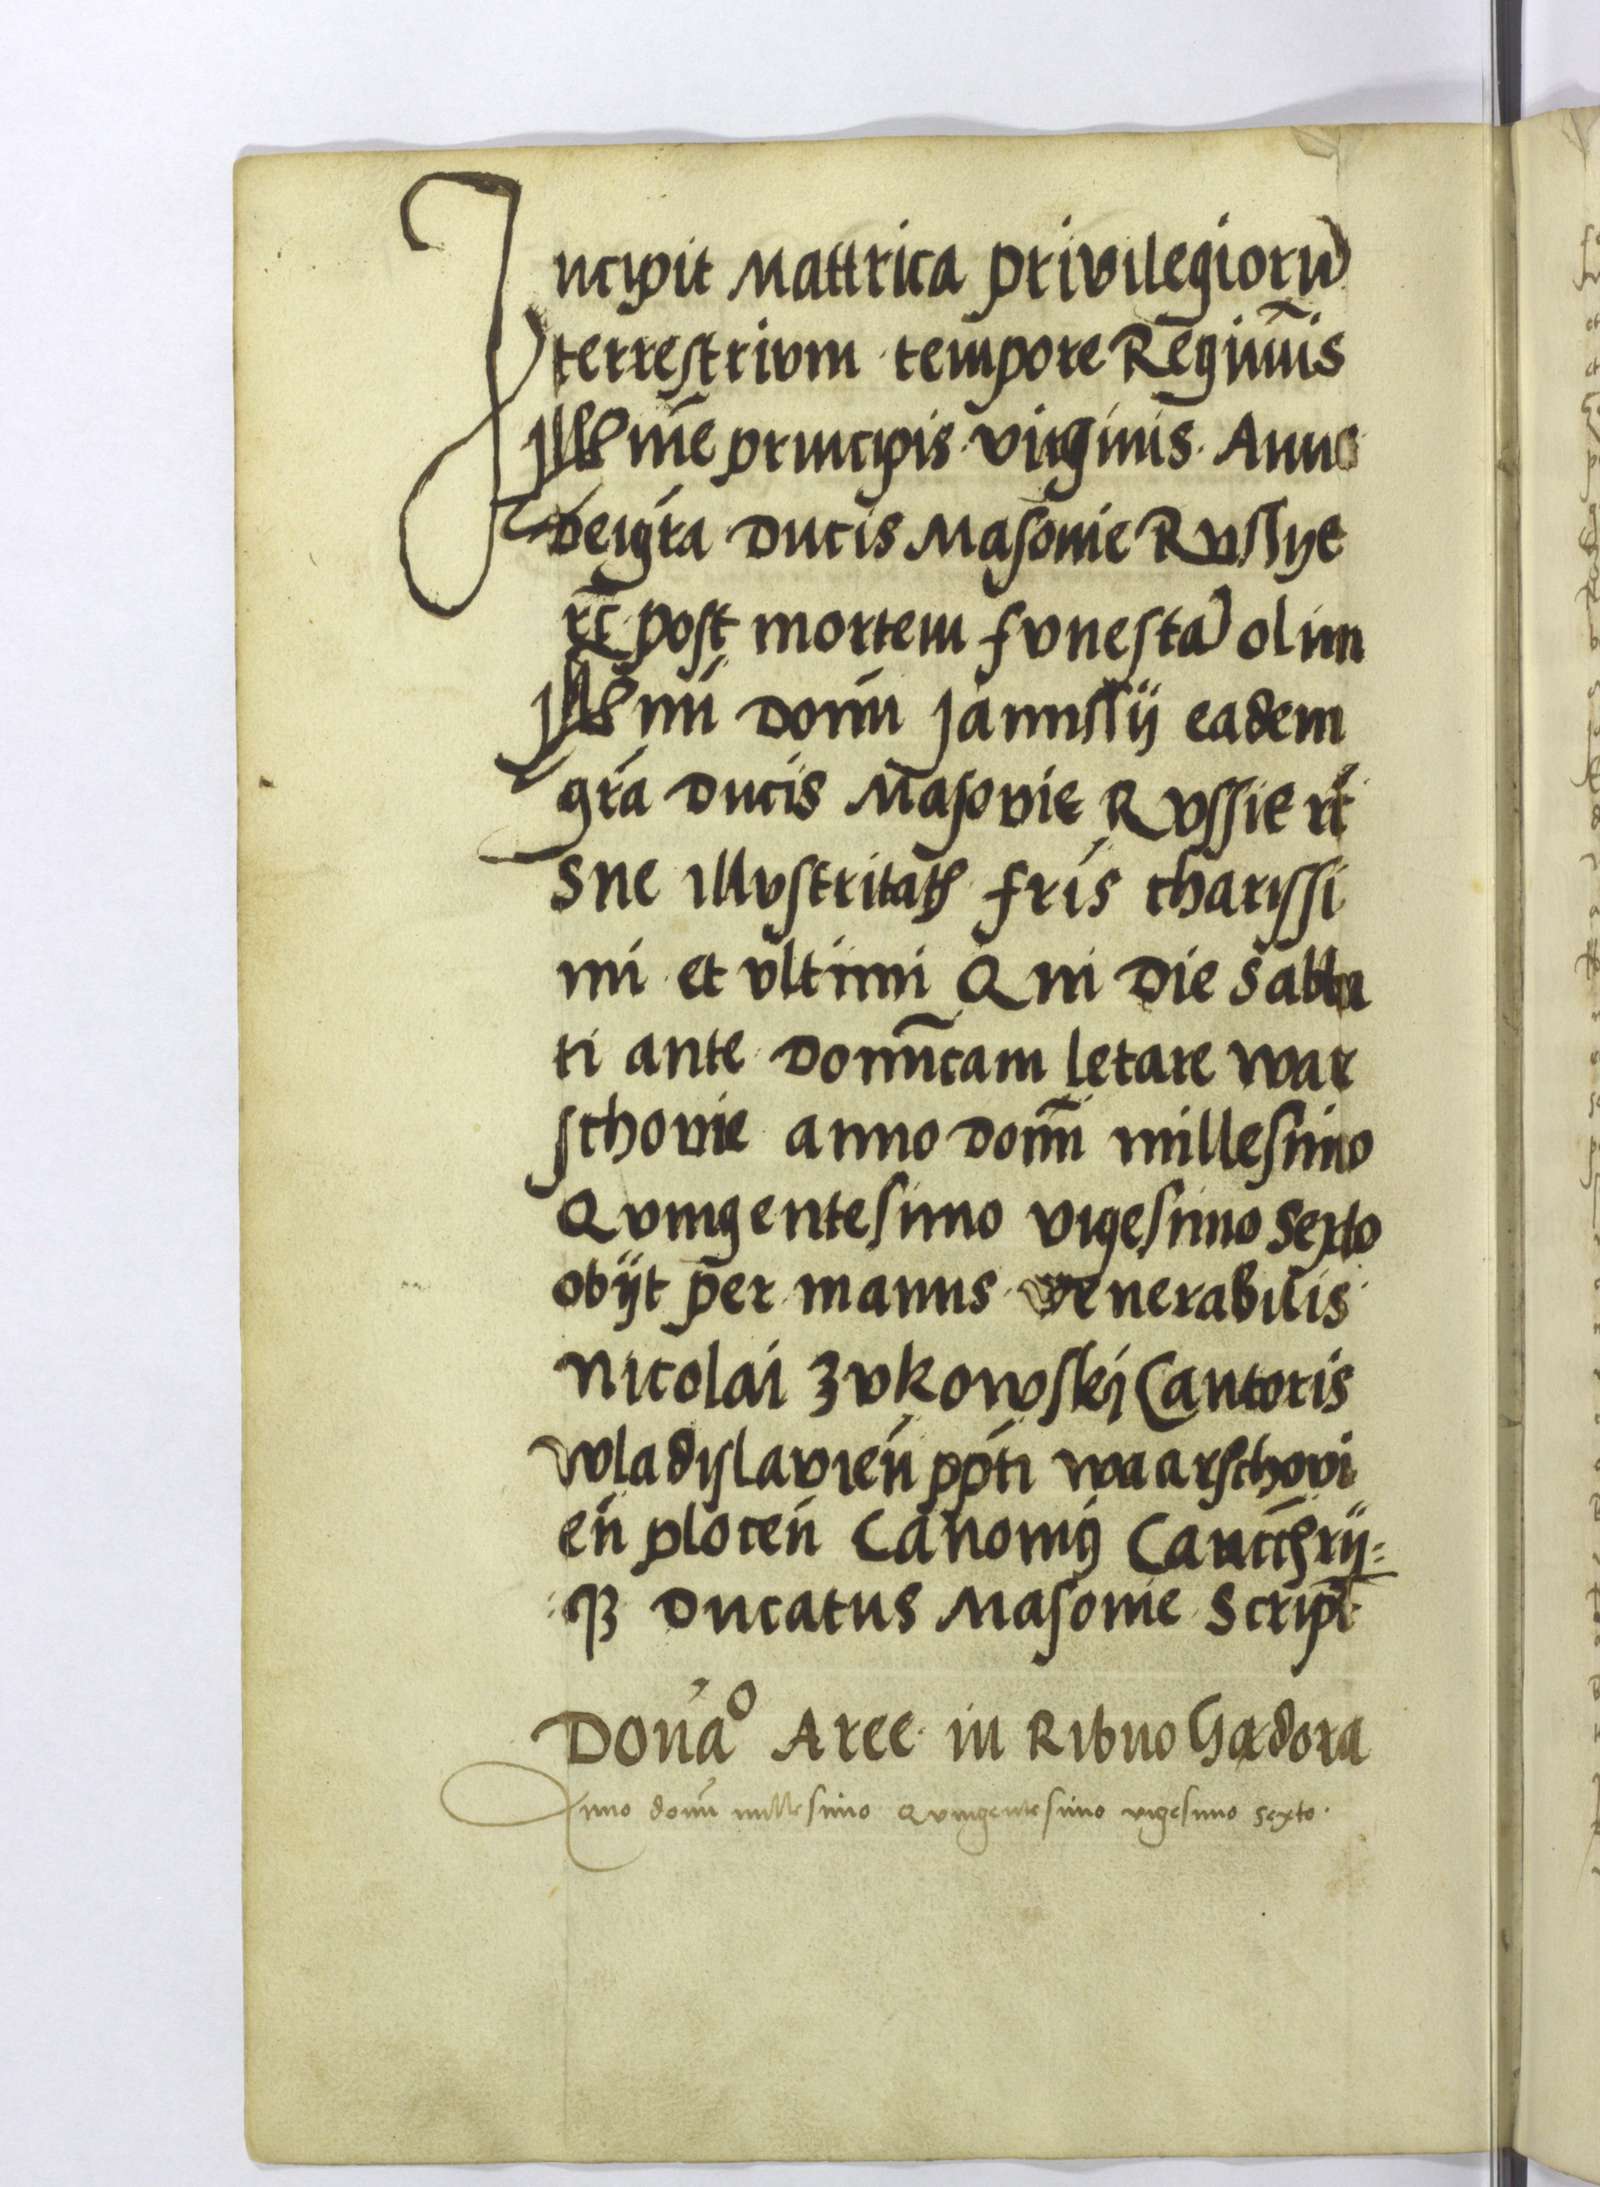 Incipit Mattrica privilegioru͂
terrestrivm tempore Regimi͂s
Illme͂ principis virginis Anne
dei gra͂ Ducis Masovie Russye
rc͂ post mortem fvnesta͂ olim
Illmi͂ Domi͂ Janussii eadem
gra͂ Ducis Masovie Rvssie rc͂
Sue illvstritatis fri͂s charissi
mi et vltimi Qui Die sabba
ti ante Domi͂cam letare war
schovie anno Domi͂ millesimo
Qvingentesimo vigesimo sexto
obijt per manus venerabilis
Nicolai Zvkowskij Cantoris
wladislavien͂ ppti͂ waarschovi
en͂ plocen͂ Canonici Cancrij͂=
:qꝫ Ducatus Masovie Script
Dona͂o Aree in Ribno Gadora
Anno domi͂ millesimo Qvingentesimo vigesimo sexto.